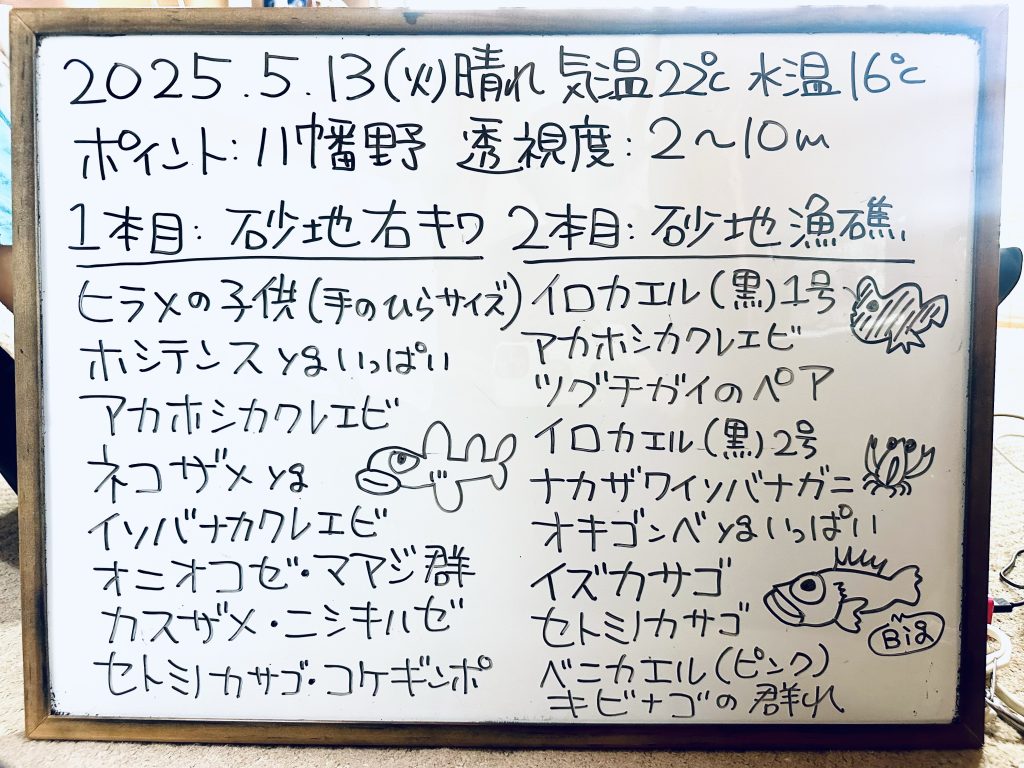 2025.5.13(火)晴れ 気温22℃ 水温16℃
ポイント:八幡野 透視度:2~10m
1本目:砂地右キワ
ヒラメの子供(手のひらサイズ)
ホシテンスygいっぱい
アカホシカクレエビ
ネコザメyg
イソバナカクレエビ
オニオコゼ・マアジ群
カスザメ・ニシキハゼ
セトミノカサゴ・コケギンポ
2本目:砂地漁礁
イロカエル(黒)1号
アカホシカクレエビ
ツグチガイのペア
イロカエル(黒)2号
ナカザワイソバナガニ
オキゴンベygいっぱい
イズカサゴ
Big
セトミノカサゴ
ベニカエル(ピンク)
キビナゴの群れ